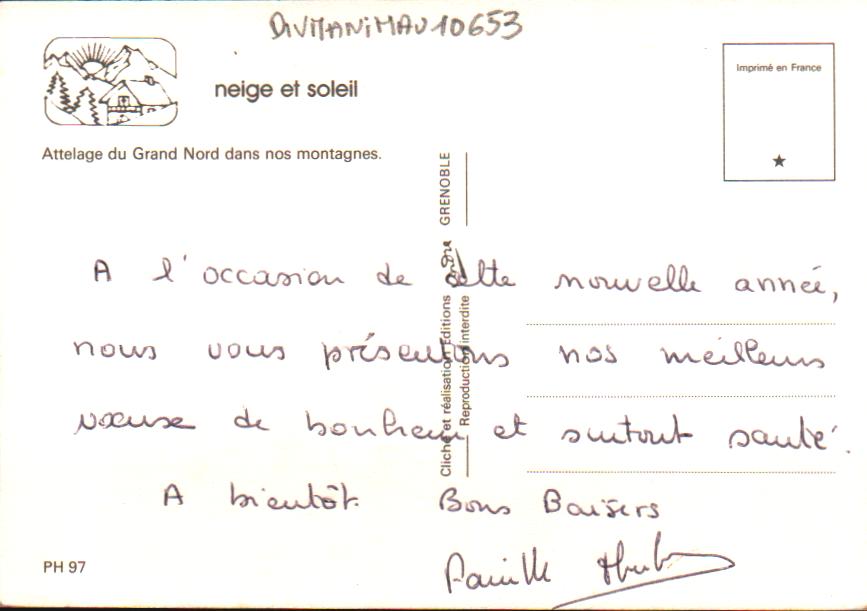 DIVMANIMAU10653
neige et soleil
Imprimé en France
Attelage du Grand Nord dans nos montagnes.
Cliché et réalisation Editions André GRENOBLE
Reproduction interdite
A l'occasion de cette nouvelle année,
nous vous présentons nos meilleurs
voeux de bonheur et surtout santé.
A bientôt. Bons Baisers
Famille
PH 97